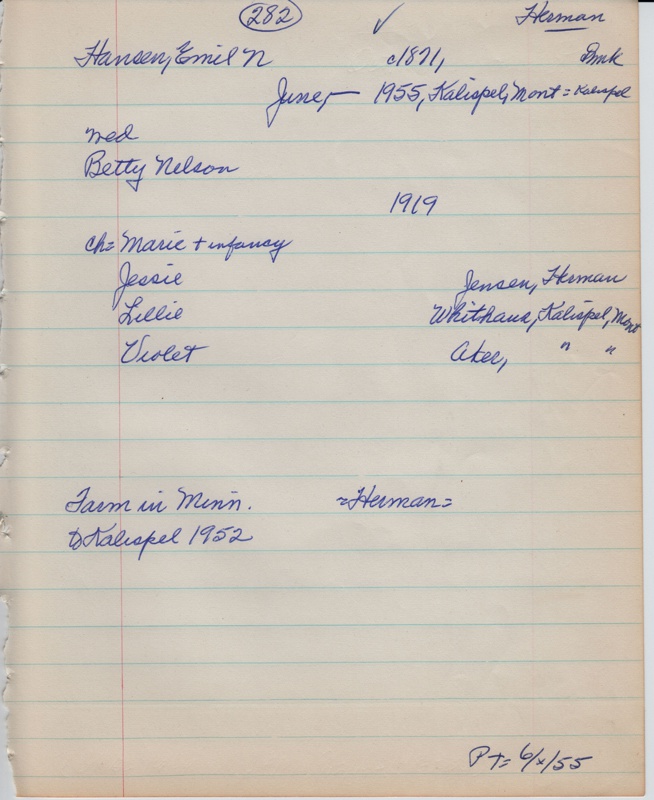 282 ✓ Herman
Hansen, Emil N c1871, Dmk
June, — 1955, Kalispel, Mont = Kalispel
Wed
Betty Nelson
1919
ch = Marie + infancy
Jessie Jensen, Herman
Lillie Whithaus, Kalispel, Mont
Violet Aker, " "
Farm in Minn. = Herman =
to Kalispel 1952
P + = 6/x/55